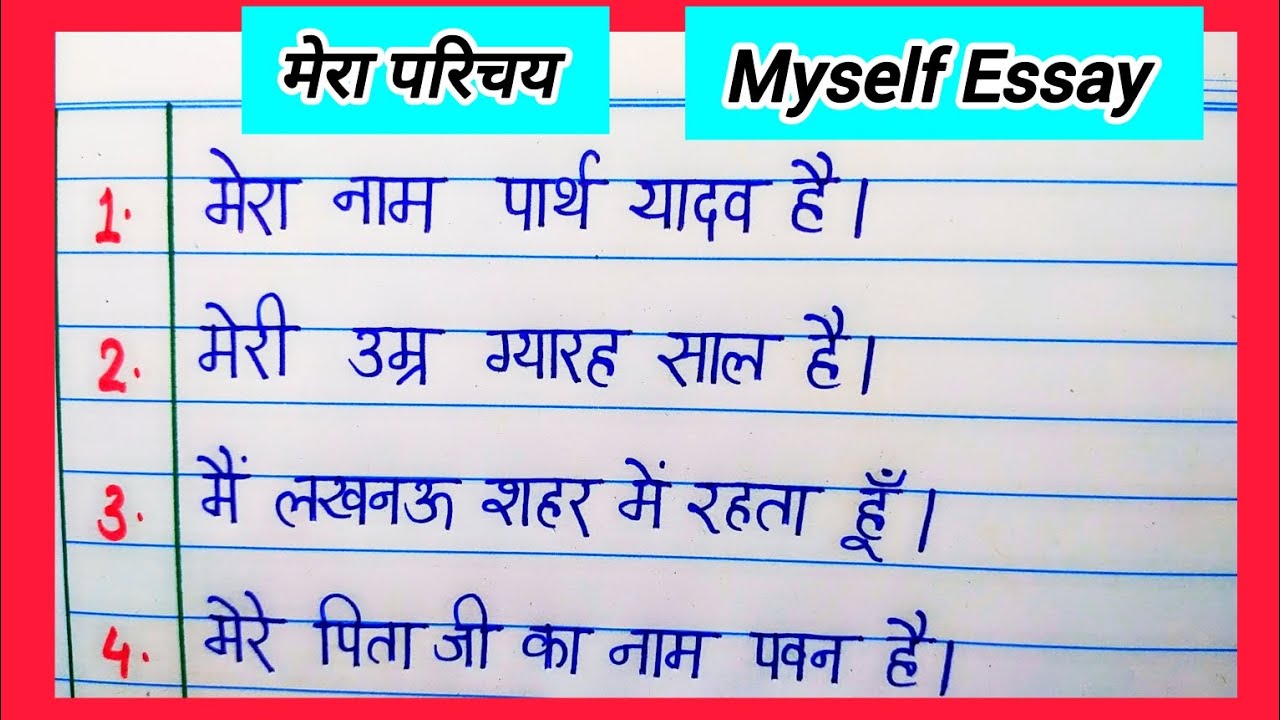 मेरा परिचय Myself Essay
1. मेरा नाम पार्थ यादव है।
2. मेरी उम्र ग्यारह साल है।
3. मैं लखनऊ शहर में रहता हूँ।
4. मेरे पिता जी का नाम पवन है।